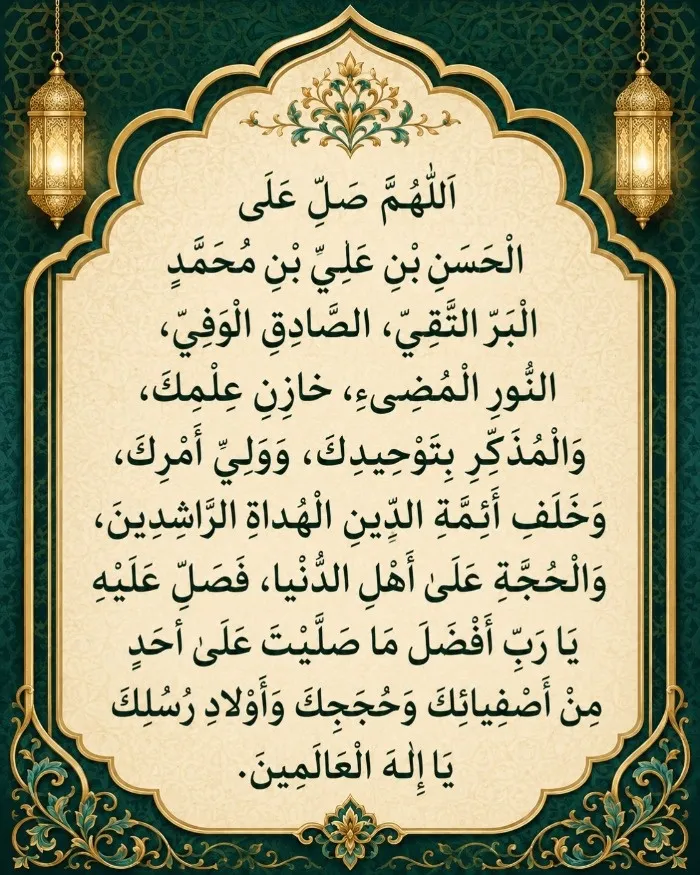 اَللّٰهُمَّ صَلِّ عَلَى
الْحَسَنِ بْنِ عَلِيِّ بْنِ مُحَمَّدٍ
الْبَرّ التَّقِيّ، الصَّادِقِ الْوَفِيّ،
النُّورِ الْمُضِىءِ، خازِنِ عِلْمِكَ،
وَالْمُذَكِّرِ بِتَوْحِيدِكَ، وَوَلِيِّ أَمْرِكَ،
وَخَلَفِ أَئِمَّةِ الدِّينِ الْهُداةِ الرَّاشِدِينَ،
وَالْحُجَّةِ عَلَىٰ أَهْلِ الدُّنْيا، فَصَلِّ عَلَيْهِ
يَا رَبِّ أَفْضَلَ مَا صَلَّيْتَ عَلَىٰ أحَدٍ
مِنْ أَصْفِيائِكَ وَحُجَجِكَ وَأَوْلادِ رُسُلِكَ
يَا إِلٰهَ الْعَالَمِينَ.